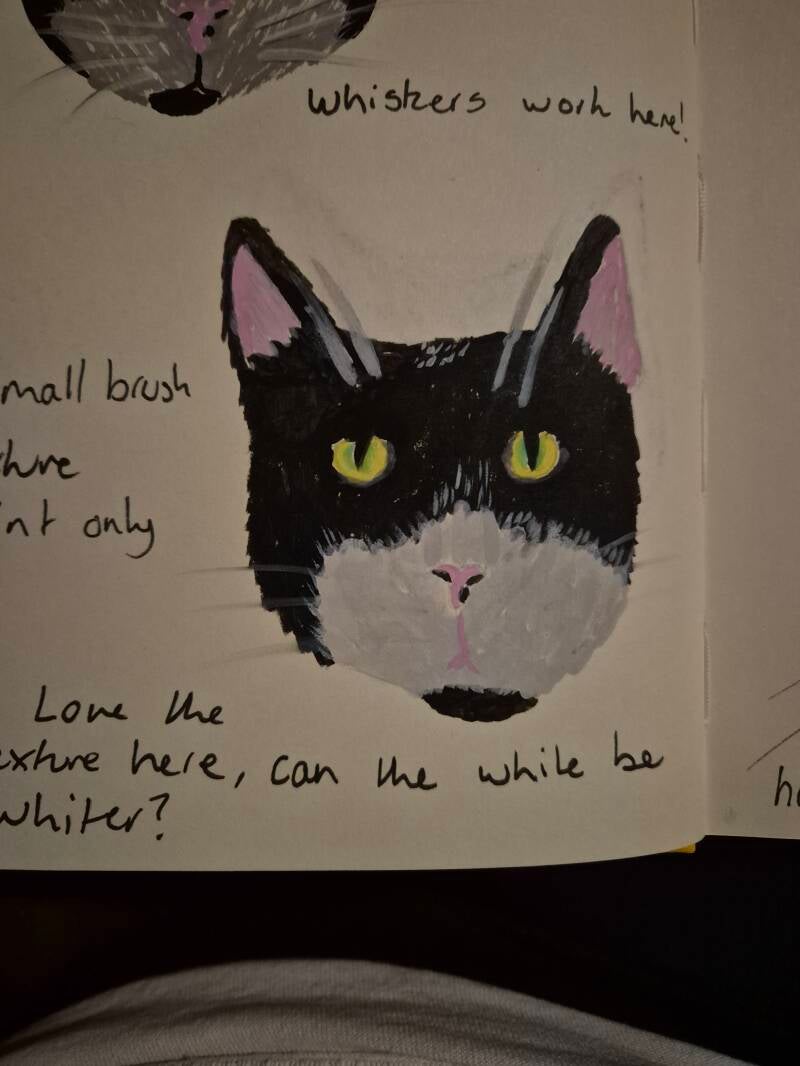 whiskers work here!
mall brush
int only
Love the
exture here, can the white be
whiter?